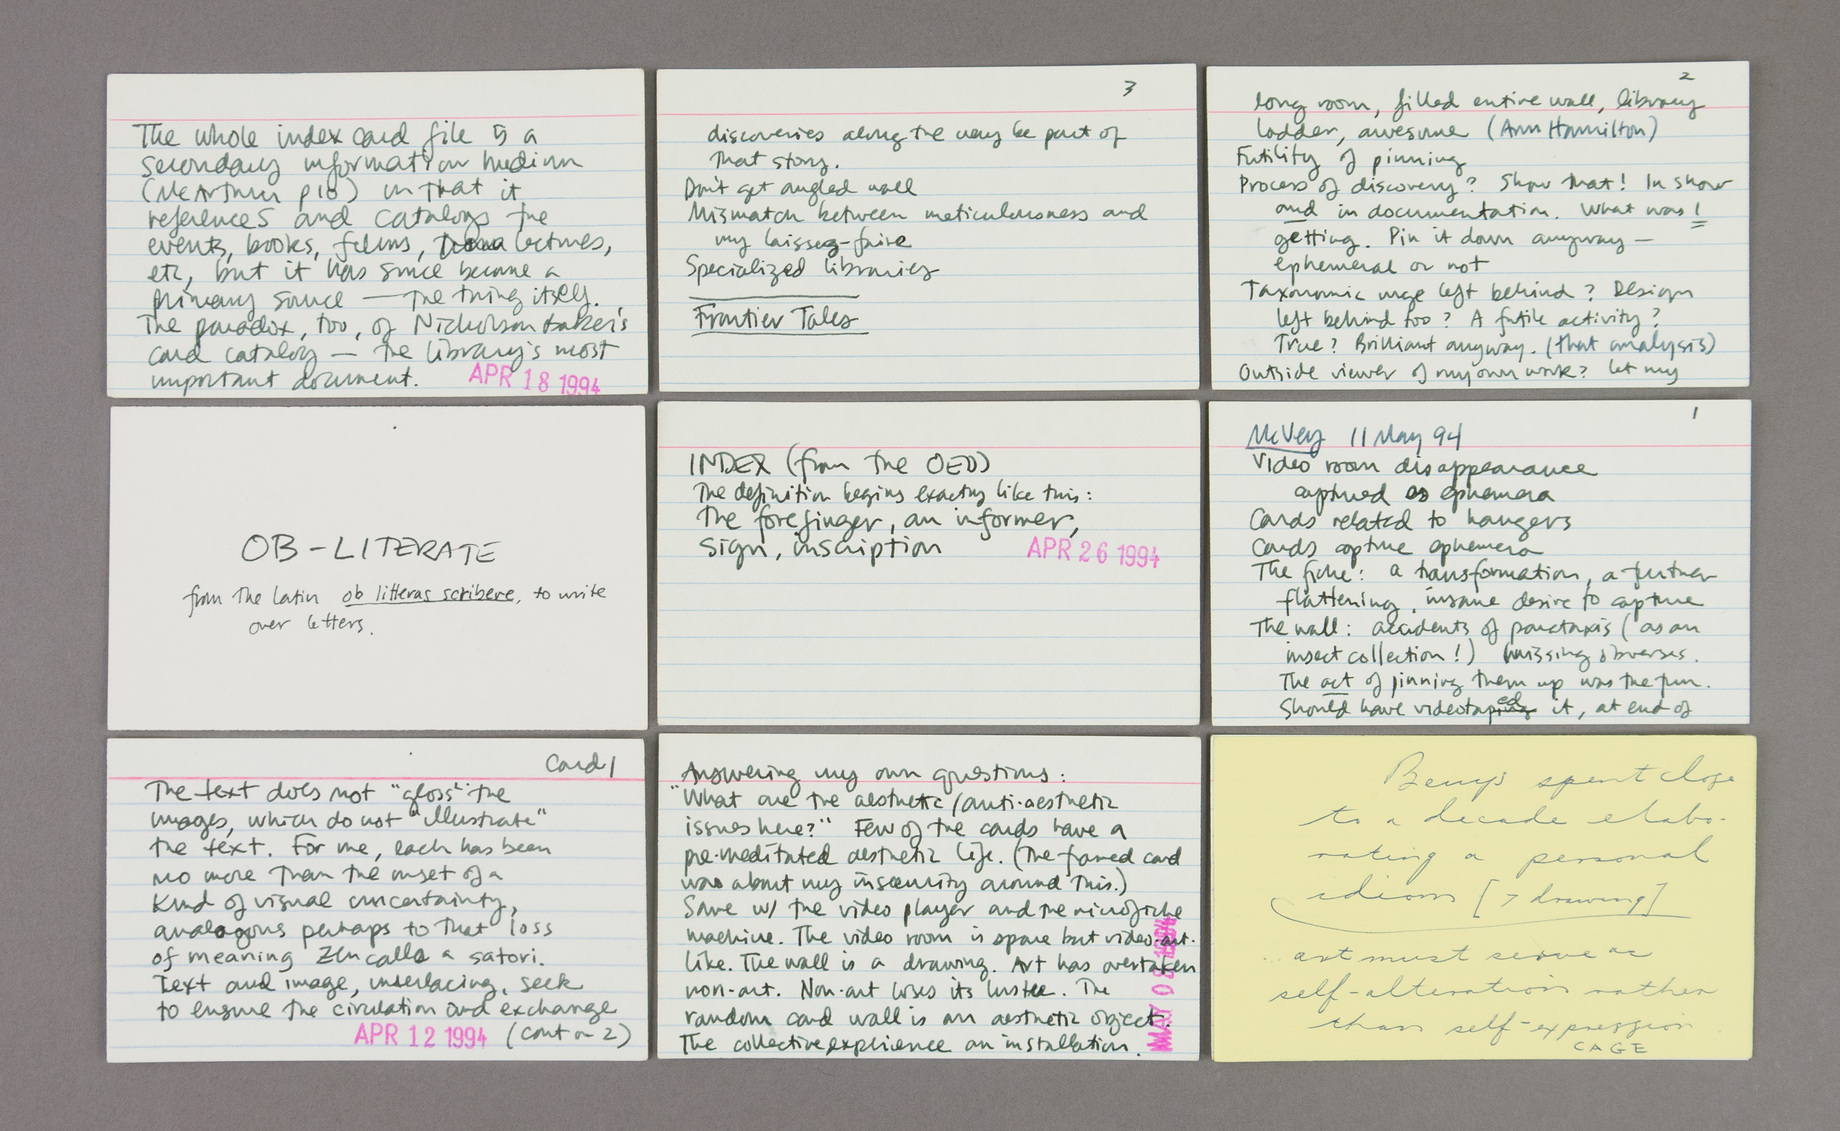 The whole index card file is a
secondary information medium
(McArthur p10) in that it
references and catalogs the
events, books, films, lectures,
etc, but it has since become a
primary source — the thing itself.
The paradox, too, of Nicholson Baker's
card catalog — the library's most
important document.
APR 18 1994
3
discoveries along the way be part of
that story.
Don't get angled wall
Mismatch between meticulousness and
my laissez-faire
Specialized libraries
Frontier Tales
2
long room, filled entire wall, library
ladder, awesome (Ann Hamilton)
Futility of pinning
Process of discovery? Show that! In show
and in documentation. What was I
getting. Pin it down anyway —
ephemeral or not
Taxonomic urge left behind? Design
left behind too? A futile activity?
True? Brilliant anyway. (that analysis)
Outside viewer of my own work? Let my
OB-LITERATE
from the Latin ob litteras scribere, to write
over letters.
INDEX (from the OED)
The definition begins exactly like this:
The forefinger, an informer,
sign, inscription
APR 26 1994
1
McVey 11 May 94
Video room disappearance
captured as ephemera
Cards related to hangers
Cards capture ephemera
The fiche: a transformation, a further
flattening, insane desire to capture
The wall: accidents of parataxis (as an
insect collection!) missing obverses.
The act of pinning them up was the fun.
Should have videotaped it, at end of
Card 1
The text does not "gloss" the
images, which do not "illustrate"
the text. For me, each has been
no more than the onset of a
kind of visual uncertainty,
analogous perhaps to that loss
of meaning Zen calls a satori.
Text and image, interlacing, seek
to ensure the circulation and exchange
APR 12 1994 (cont on 2)
Answering my own questions:
"What are the aesthetic/anti-aesthetic
issues here?" Few of the cards have a
pre-meditated aesthetic life. (The framed card
was about my insecurity around this.)
Same w/ the video player and the microfiche
machine. The video room is spare but video-art-
like. The wall is a drawing. Art has overtaken
non-art. Non-art loses its luster. The
random card wall is an aesthetic object.
The collective experience an installation.
MAY 0 1994
Benys spent close
to a decade elabo-
rating a personal
idiom [7 drawing]
... art must serve as
self-alteration rather
than self-expression
CAGE